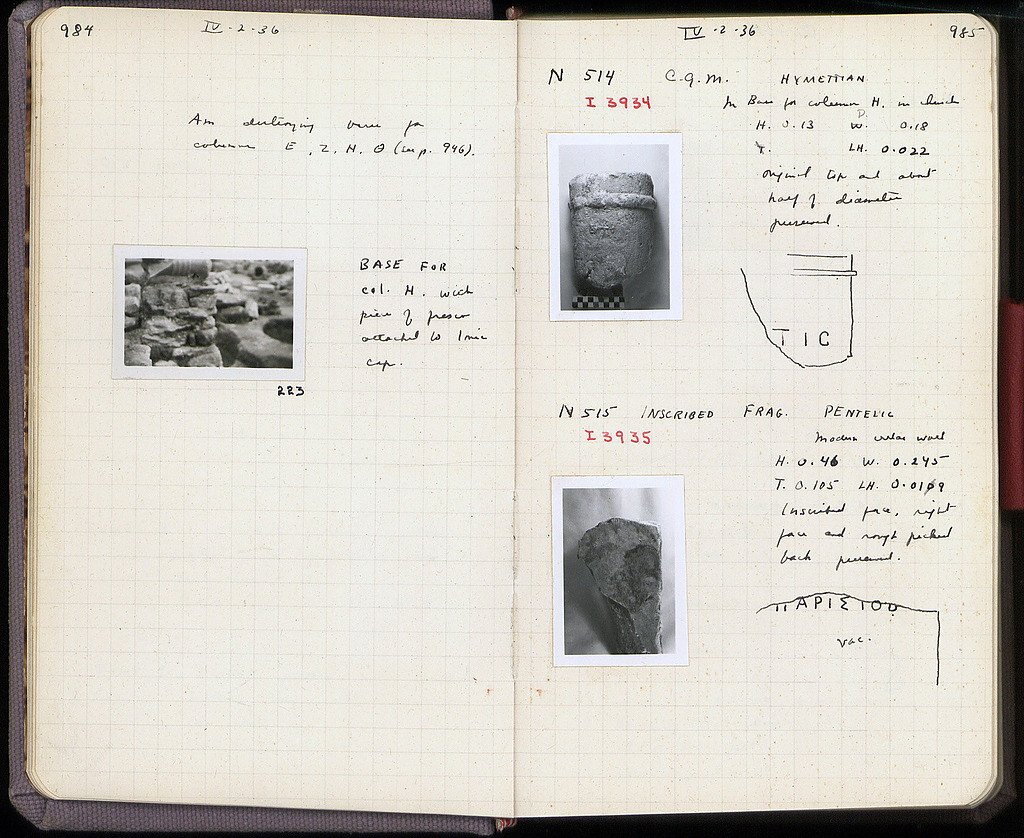 984
IV - 2 - 36
Am destroying bases for
columns E, Z, H, Θ (see p. 946).
BASE FOR
col. H. with
piece of fresco
attached to Ionic
cap.
223
IV - 2 - 36
985
N 514 C.G.M. HYMETTIAN
I 3934
In Base for column H. in church
H. 0.13 D. W. 0.18
T. LH. 0.022
original top and about
half of diameter
preserved.
ΤΙC
N 515 INSCRIBED FRAG. PENTELIC
I 3935
Modern cellar wall
H. 0.46 W. 0.245
T. 0.105 LH. 0.019
Inscribed face, right
face and rough picked
back preserved.
ΠΑΡΙΣΙΟΟ
vac.